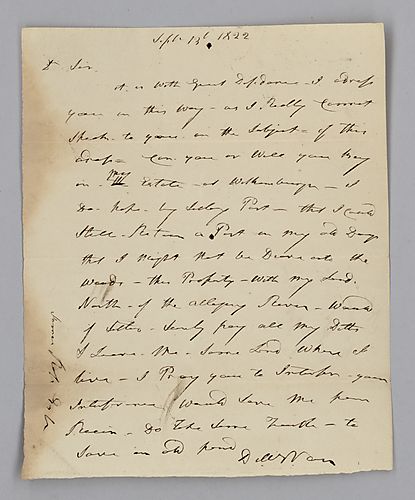 Sept 13t 1822
Dr Sir
it is with Great Difidance I adress
you in this way - as I Really Cannot
Speak to you on the Subject of this
adress Can you or Will you buy
my Estate at
Do hope by Selling Part - that I could
Still Retain a Part in my old Days
that I might not be Drove into the
Woods - this Property - With my Land
North of the allegany River - Would
if Sold Pay all my Debts
& Leave Me Some Land Where I
live - I Pray you to Interfere your
Interference Would Save Me from
Ruin Do take Some Trouble to
Save an old